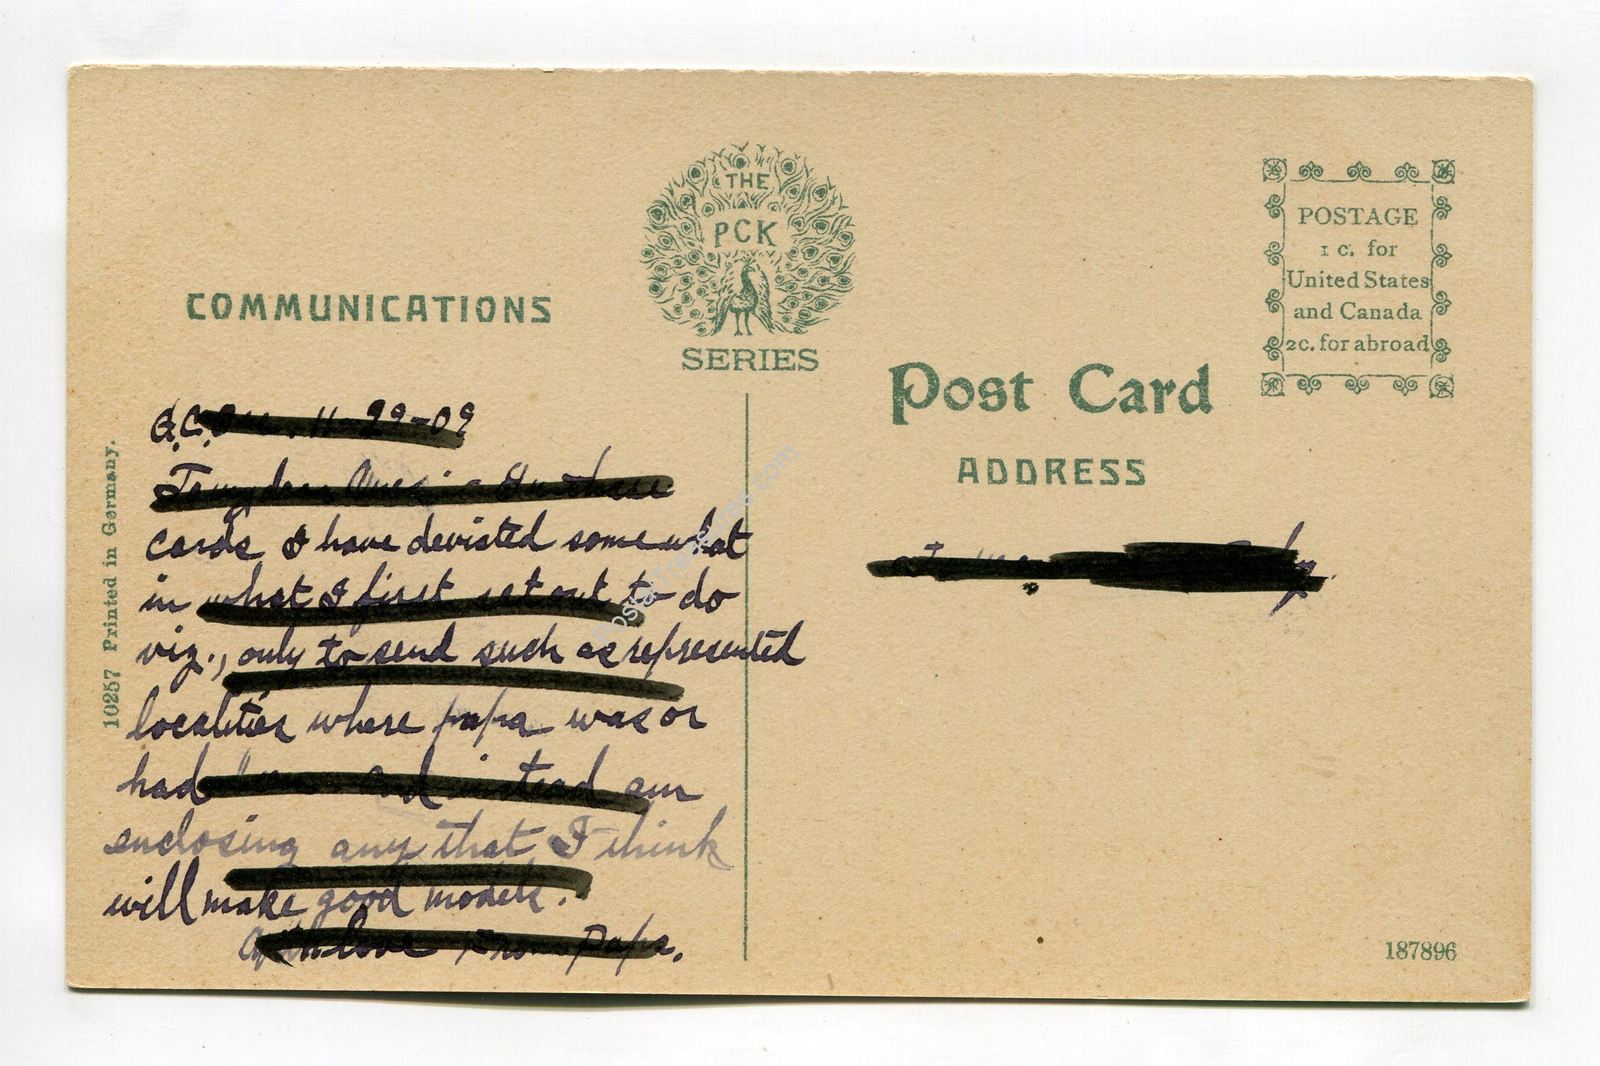 THE
PCK
SERIES
COMMUNICATIONS
POSTAGE
1 c. for
United States
and Canada
2c. for abroad
Post Card
ADDRESS
11-29-09
To my dear In these
cards I have deviated somewhat
in what I first set out to do
viz., only to send such as represented
localities where papa was or
had been and instead am
enclosing any that I think
will make good models.
With love From Papa.
10257 Printed in Germany.
187896